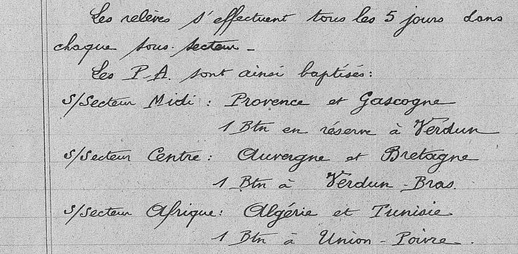 Les relèves s'effectuent tous les 5 jours dans
chaque sous-secteur -
Les P.A. sont ainsi baptisés:
S/Secteur Midi : Provence et Gascogne
1 Btn en réserve à Verdun
S/Secteur Centre : Auvergne et Bretagne
1 Btn à Verdun-Bras.
S/Secteur Afrique : Algérie et Tunisie
1 Btn à Union-Poivre.